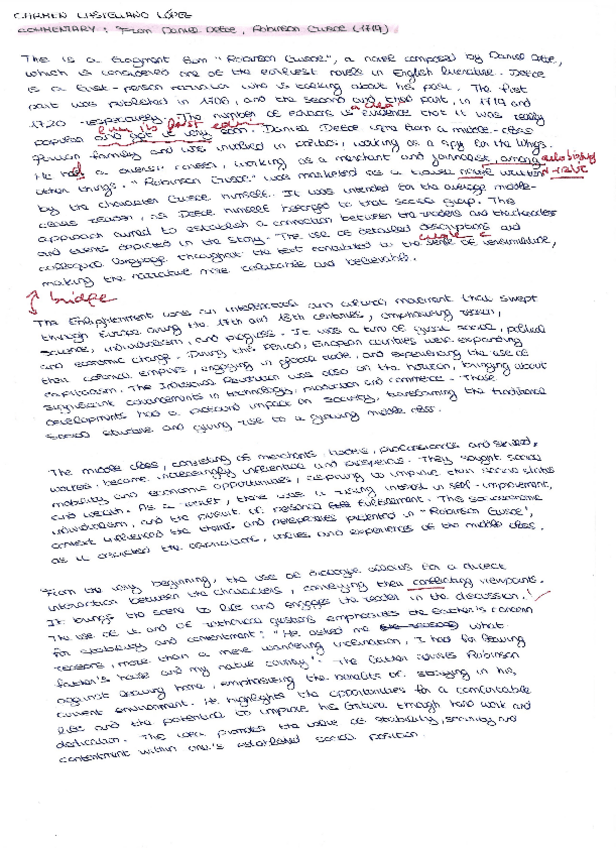 CARMEN CASTELLANO LÓPEZ
COMMENTARY: From Daniel Defoe, Robinson Crusoe (1719)
This is a fragment from "Robinson Crusoe", a novel composed by Daniel Defoe,
which is considered one of the earliest novels in English literature. Defoe
is a first-person narrator who is talking about his past. The first
part was published in 1700, and the second and third part, in 1719 and
1720 respectively. The number of editions is evidence that it was really
a clear
popular and got
from its first
very soon. Daniel Defoe was from a middle-class
family and was involved in politics, working as a spy for the Whigs.
He had a career, working as a merchant and journalist, among
other things. "Robinson Crusoe" was marketed as a travel written
autobiography
by the character Crusoe himself. It was intended for the average middle-
class reader, as Defoe himself belonged to that social group. This
approach aimed to establish a connection between the readers and the character
and events depicted in the story. The use of detailed descriptions and
colloquial language throughout the text contributed to the sense of verisimilitude,
making the narrative more and believable.
bridge
The Enlightenment was an intellectual and cultural movement that swept
through Europe during the 17th and 18th centuries, emphasizing reason,
science, individualism, and progress. It was a time of social, political
and economic change. During this period, European countries were expanding
their colonial empires, engaging in global trade, and experiencing the rise of
capitalism. The Industrial Revolution was also on the horizon, bringing about
significant advancements in technology, production and commerce. These
developments had a profound impact on society, transforming the traditional
social structure and giving rise to a growing middle class.
The middle class, consisting of merchants, traders, professionals and skilled
workers became increasingly influential and prosperous. They sought social
mobility and economic opportunities, aspiring to improve their social status
and wealth. As a result, there was a rising interest in self-improvement,
individualism, and the pursuit of personal fulfillment. This socioeconomic
context influenced the themes and perspectives presented in "Robinson Crusoe",
as it reflected the aspirations, values and experiences of the middle class.
From the very beginning, the use of dialogue allows for a direct
interaction between the characters, conveying their conflicting viewpoints.
It brings the scene to life and engages the reader in the discussion.
The use of it and of rhetorical questions emphasizes the father's concern
for stability and contentment: "He asked me what
reasons, more than a mere wandering inclination, I had for leaving
father's house and my native country". The father advises Robinson
against leaving home, emphasizing the benefits of staying in his
current environment. He highlights the opportunities for a comfortable
life and the potential to improve his fortune through hard work and
dedication. The idea promotes the value of stability, security and
contentment within one's established social position.